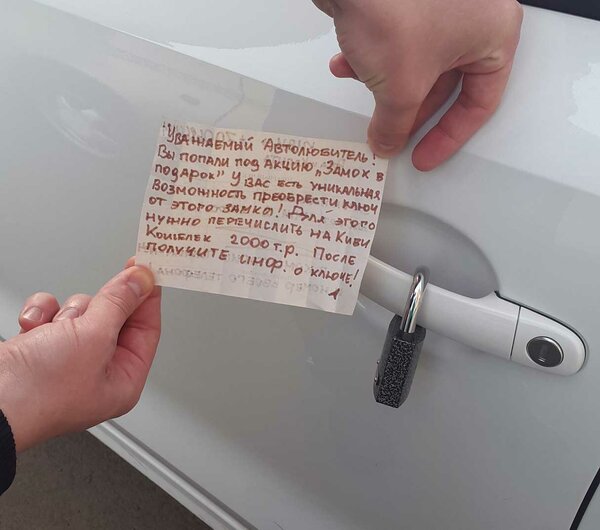 Уважаемый Автолюбитель!
Вы попали под акцию „Замок в
подарок" У вас есть уникальная
возможность преобрести ключ
от этого замка! Для этого
нужно перечислить на Киви
Кошелек 2000 т.р. После
получите инф. о ключе!
1